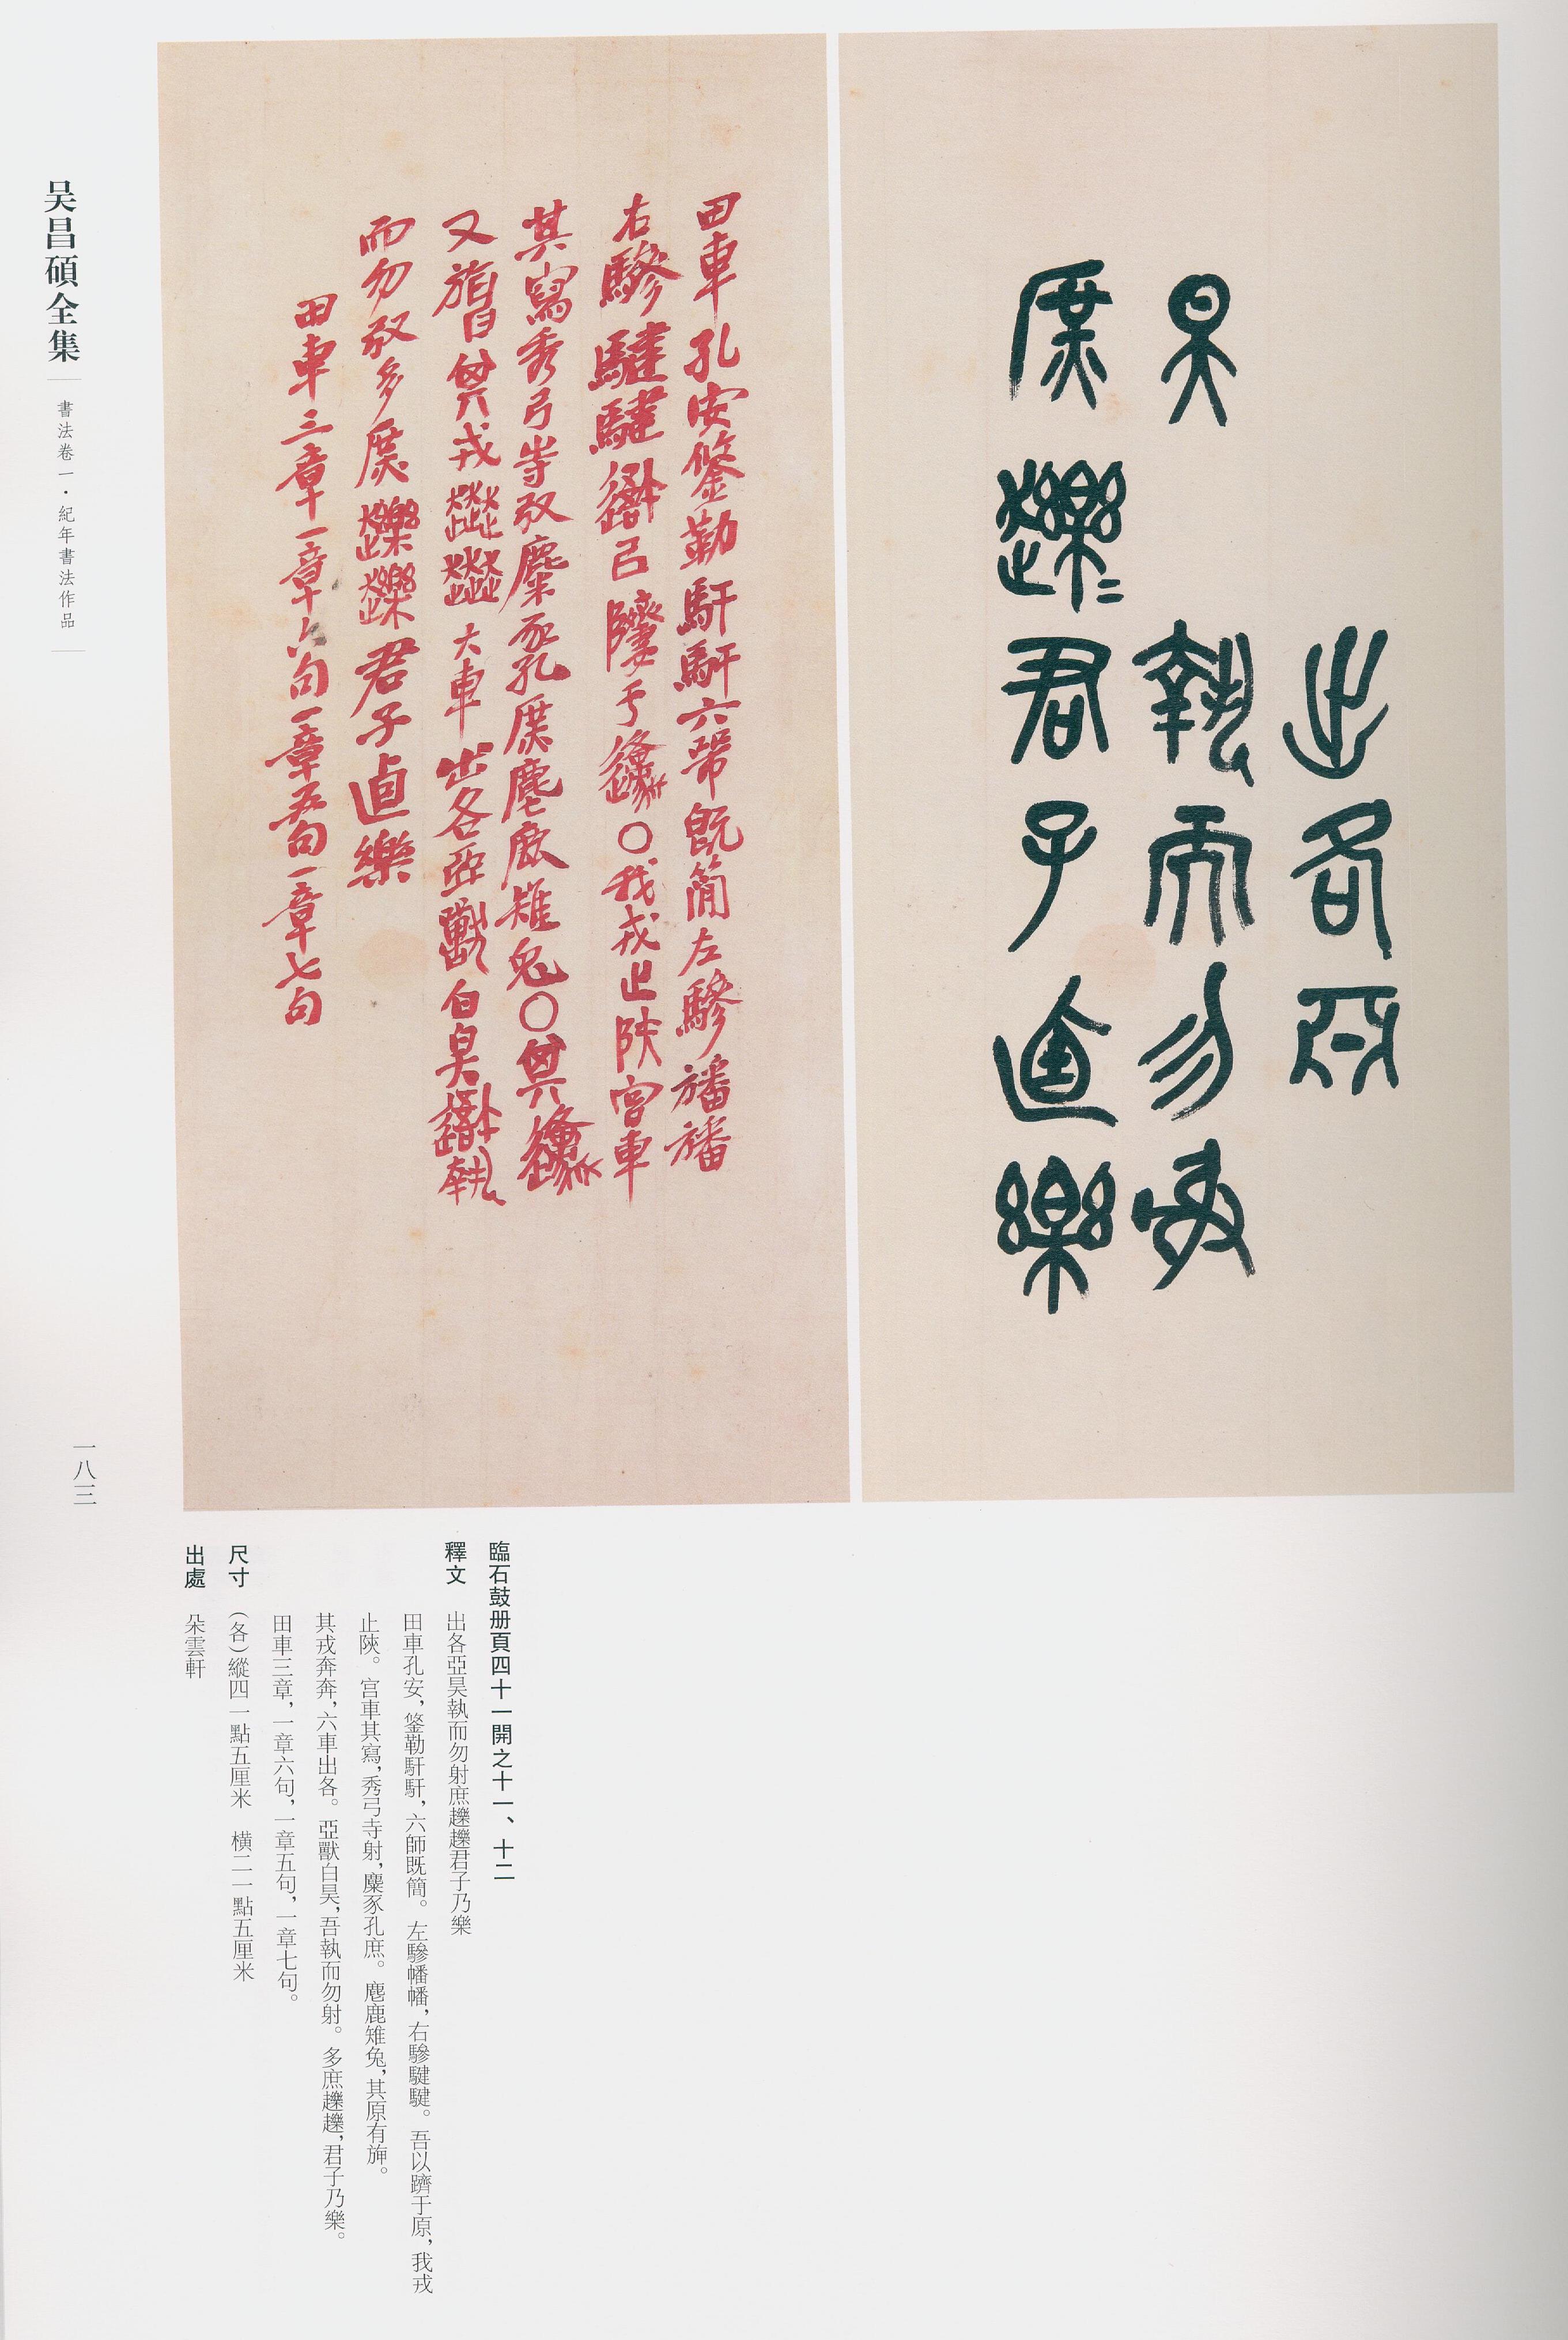 出各亞
昊執而勿射
庶趮=君子逌樂
田車孔安鋚勒馯馯六師既簡左驂旛旛
右驂騝騝避㠯隮于邍○我戎止陜宮車
其寫秀弓寺射麋豕孔庶麀鹿雉兔○其邍
又旃其戎奔奔大車出各亞獸白昊執
而勿射多庶君子逌樂
田車三章一章六句一章五句一章七句
臨石鼓册頁四十一開之十一、十二
釋文 出各亞昊執而勿射庶趮趮君子乃樂
田車孔安，鋚勒馯馯，六師既簡。左驂幡幡，右驂騝騝。吾以躋于原，我戎
止陝。宮車其寫，秀弓寺射，麋豕孔庶。麀鹿雉兔，其原有旃。
其戎奔奔，六車出各。亞獸白昊，吾執而勿射。多庶趮趮，君子乃樂。
田車三章，一章六句，一章五句，一章七句。
尺寸 （各）縱四一點五厘米 橫二一點五厘米
出處 朵雲軒
吴昌碩全集
書法卷一·紀年書法作品
一八三